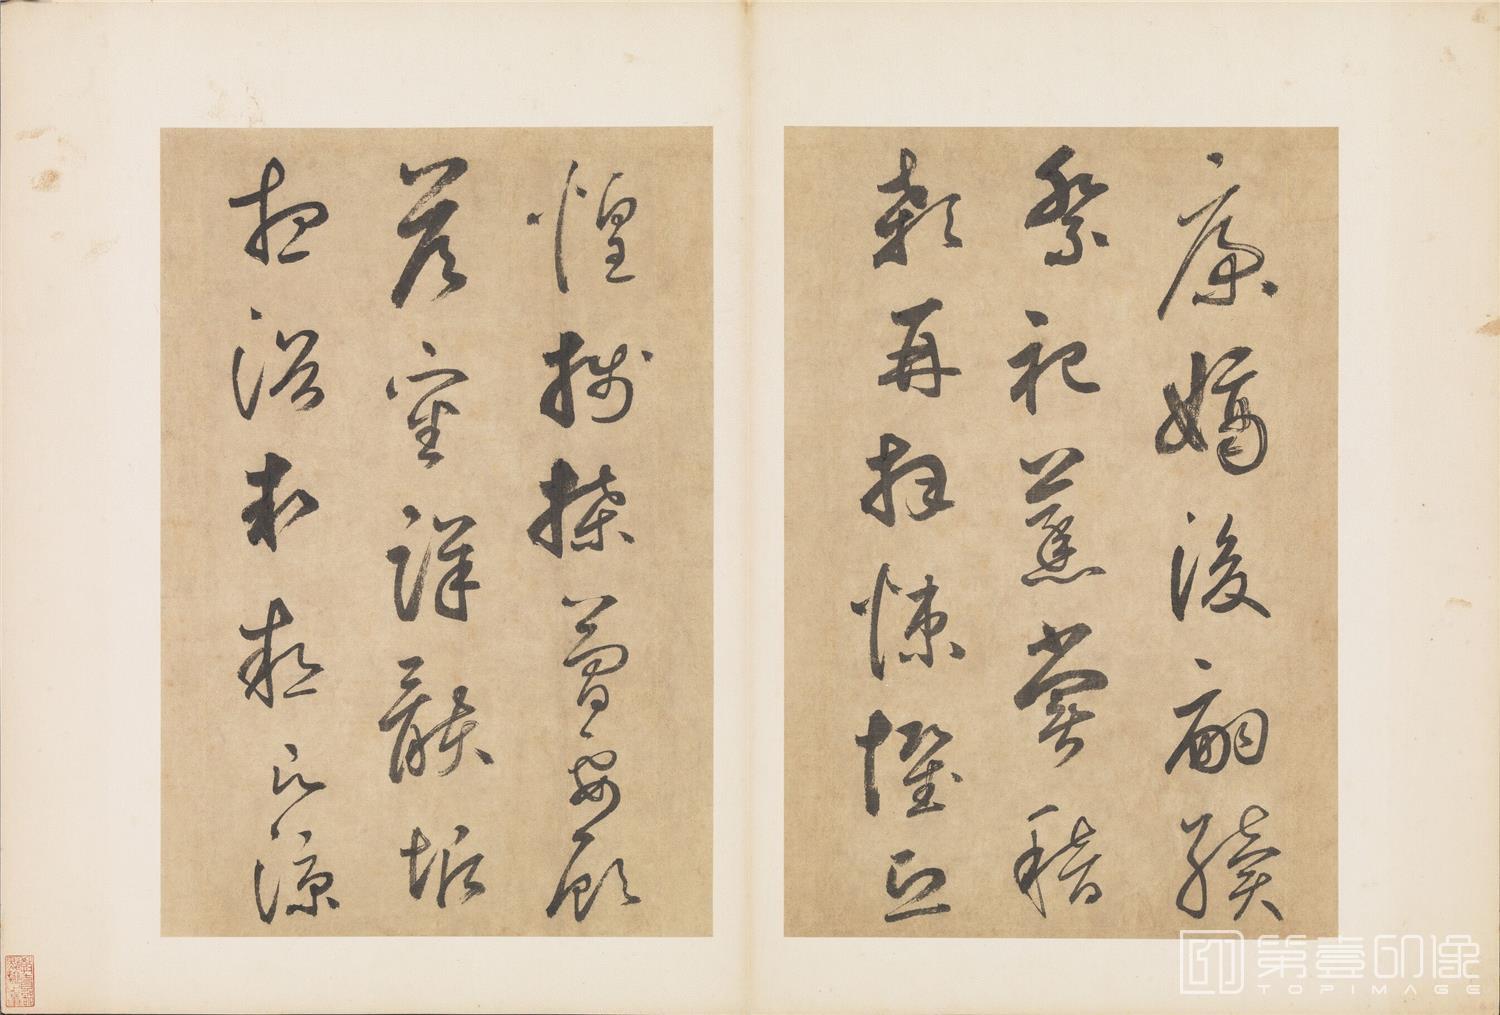 康嫡後嗣續
祭祀蒸嘗稽
顙再拜悚懼恐
惶牋牒簡要顧
答審詳骸垢
想浴執熱願涼
第壹印像
TOPIMAGE